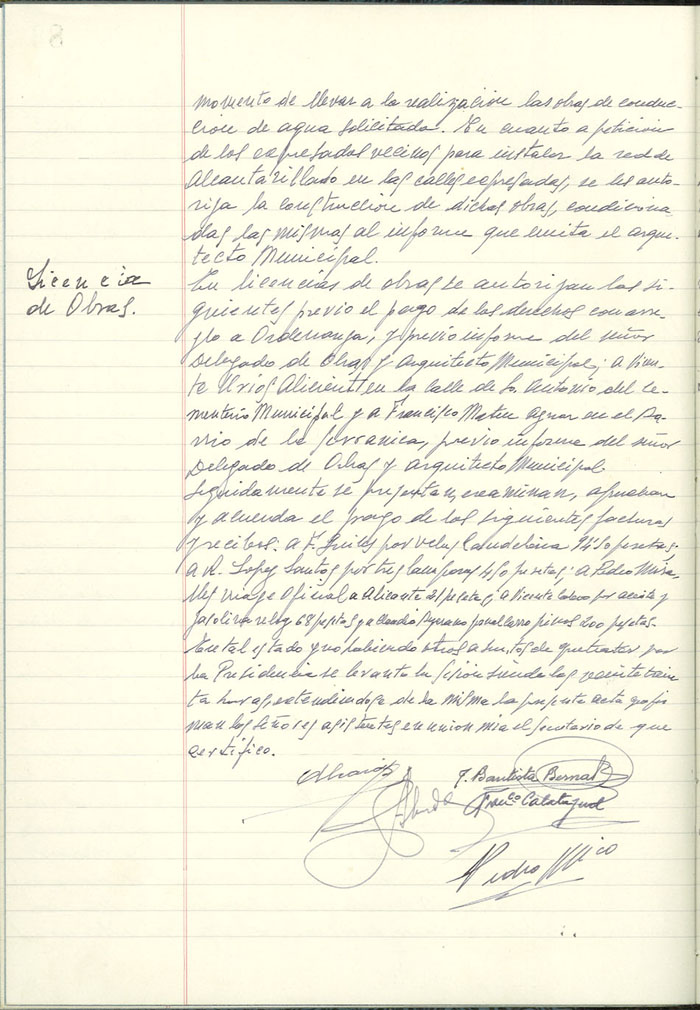 momento de llevar a la realización las obras de conduc-
ción de agua solicitada. En cuanto a petición
de los expresados vecinos para instalar la red de
Alcantarillado en las calles expresadas, se les auto-
riza la construcción de dichas obras, condiciona-
das las mismas al informe que emita el arqui-
tecto Municipal.
Licencia
de Obras.
En licencias de obras se autorizan las si-
guientes previo el pago de los derechos con arre-
glo a Ordenanza, y previo informe del señor
Delegado de Obras y Arquitecto Municipal; a Vicen-
te Urios Alicient en la calle de S. Antonio del Ce-
menterio Municipal y a Francisco Mateu Aznar en el Ba-
rrio de la Serranica, previo informe del señor
Delegado de Obras y arquitecto Municipal.
Seguidamente se presentan, examinan, aprueban
y acuerda el pago de los siguientes facturas
y recibos. a F. por velas Candelaria, 94'50 pesetas;
a R. Lopez Santos por tres lamparas 450 pesetas; a Pedro Mira-
lles viaje Oficial a Alicante 21 peseta; a Vicente por aceite y
gasolina reloj 68 pesetas y a Claudio por acarreo pinos 200 pesetas.
En tal estado y no habiendo otros asuntos de que tratar, por
la Presidencia se levanta la sesión siendo las veinte trein-
ta horas, extendiendose de la misma la presente acta que fir-
man los Señores asistentes en union mia el secretario de que
certifico.
J. Bautista Bernab
Franco Calatayud
Pedro Mico